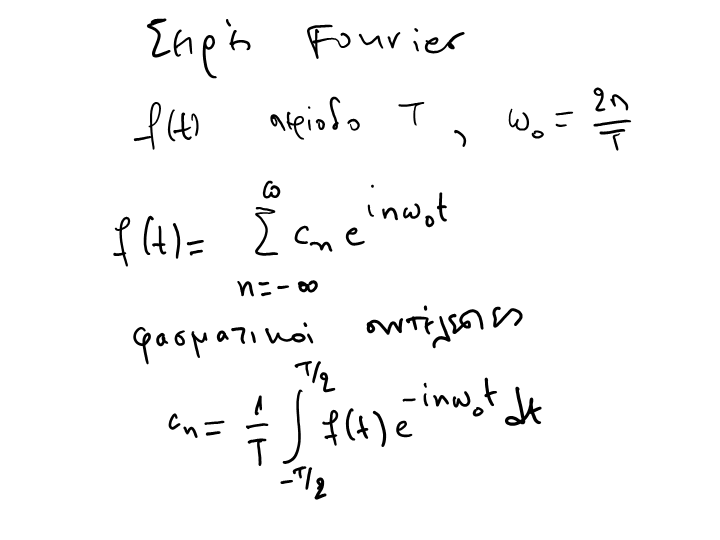 Σειρά Fourier
f(t) περίοδο T, ω₀ = 2π/T
f(t) = ∑_{n=-∞}^{∞} cₙ e^{inω₀t}
φασματικοί συντελεστές
cₙ = 1/T ∫_{-T/2}^{T/2} f(t) e^{-inω₀t} dt